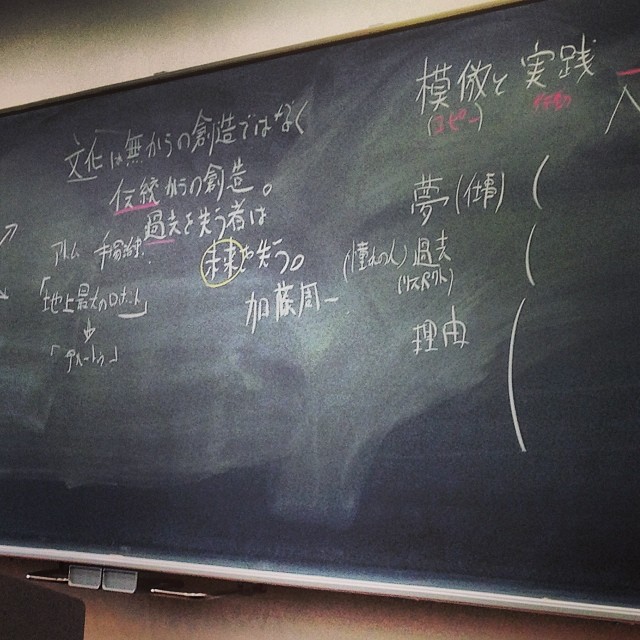 文化は無からの創造ではなく
伝統からの創造。
過去を失う者は
未来を失う。
加藤周一
アトム 手塚治虫
「地上最大のロボット」
↓
「プルートゥ」
模倣と実践
(コピー) 行動
夢(仕事)(
(憧れの人)過去(
(リスペクト)
理由(